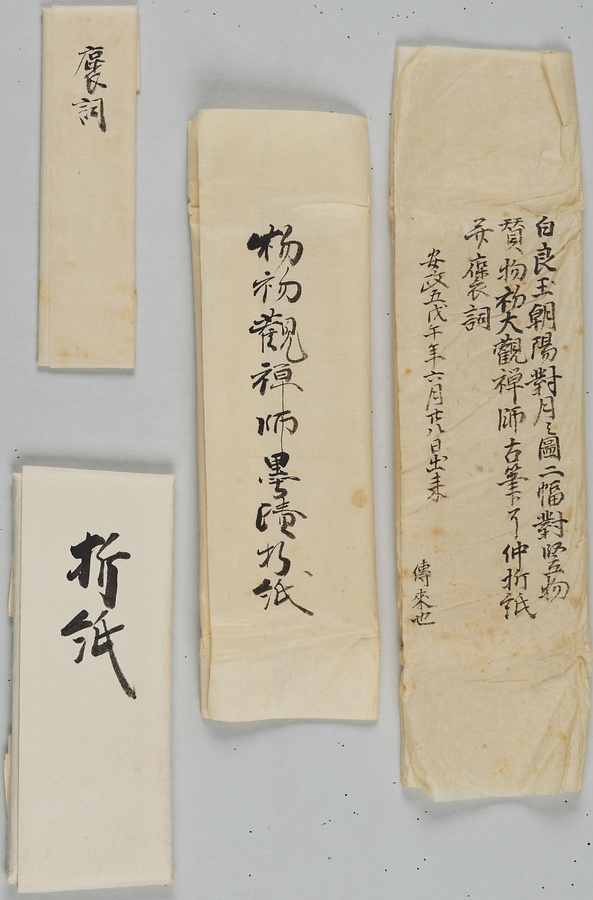 白良玉朝陽對月之圖二幅對竪物
賛物初大觀禪師古筆了仲折紙
并褒詞
安政五戊午年六月廿八日出来
傳來也
物初觀禅師墨蹟折紙
褒詞
折紙